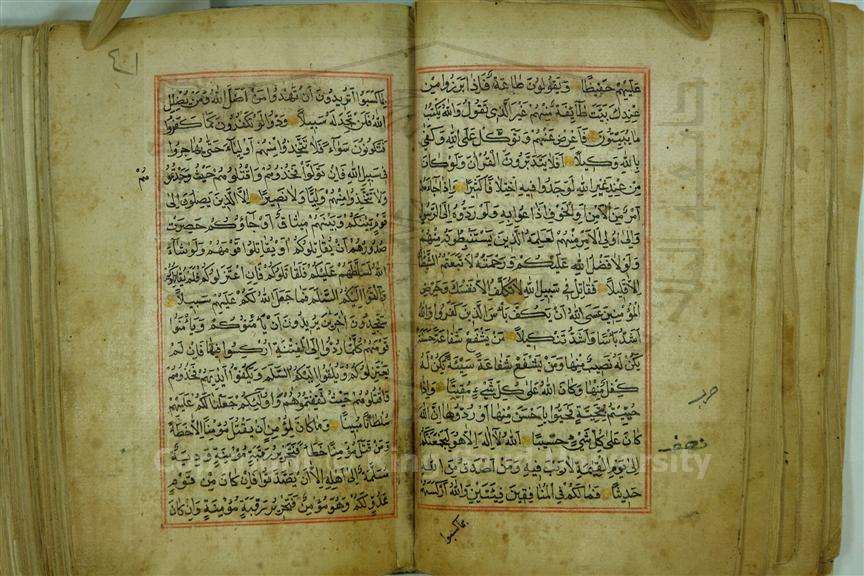 عليهم حفيظا ويقولون طاعة فاذا برزوا من
عندك بيت طايفة منهم غير الذي تقول والله يكتب
ما يبيتون فاعرض عنهم وتوكل على الله وكفى
بالله وكيلا افلا يتدبرون القران ولو كان
من عند غير الله لوجدوا فيه اختلافا كثيرا واذا جاءهم
امر من الامن او الخوف اذاعوا به ولو ردوه الى الرسول
والى اولي الامر منهم لعلمه الذين يستنبطونه منهم
ولولا فضل الله عليكم ورحمته لاتبعتم الشيطان
الا قليلا فقاتل في سبيل الله لا تكلف الا نفسك وحرض
المؤمنين عسى الله ان يكف باس الذين كفروا والله
اشد باسا واشد تنكيلا من يشفع شفاعة حسنة
يكن له نصيب منها ومن يشفع شفاعة سيئة يكن له
كفل منها وكان الله على كل شيء مقيتا واذا
حييتم بتحية فحيوا باحسن منها او ردوها ان الله
كان على كل شيء حسيبا الله لا اله الا هو ليجمعنكم
الى يوم القيمة لا ريب فيه ومن اصدق من الله
حديثا فما لكم في المنافقين فئتين والله اركسهم
بما كسبوا
حزب
نصف
بما كسبوا اتريدون ان تهدوا من اضل الله ومن يضلل
الله فلن تجد له سبيلا ودوا لو تكفرون كما كفروا
فتكونون سواء فلا تتخذوا منهم اولياء حتى يهاجروا
في سبيل الله فان تولوا فخذوهم واقتلوهم حيث وجدتموهم
ولا تتخذوا منهم وليا ولا نصيرا الا الذين يصلون الى
قوم بينكم وبينهم ميثاق او جاؤكم حصرت
صدورهم ان يقاتلوكم او يقاتلوا قومهم ولو شاء
الله لسلطهم عليكم فلقاتلوكم فان اعتزلوكم فلم يقاتلوكم
والقوا اليكم السلم فما جعل الله لكم عليهم سبيلا
ستجدون اخرين يريدون ان يامنوكم ويامنوا
قومهم كلما ردوا الى الفتنة اركسوا فيها فان لم
يعتزلوكم ويلقوا اليكم السلم ويكفوا ايديهم فخذوهم
واقتلوهم حيث ثقفتموهم واولئكم جعلنا لكم عليهم
سلطانا مبينا وما كان لمؤمن ان يقتل مؤمنا الا خطا
ومن قتل مؤمنا خطا فتحرير رقبة مؤمنة ودية
مسلمة الى اهله الا ان يصدقوا فان كان من قوم
عدو لكم وهو مؤمن فتحرير رقبة مؤمنة وان كان